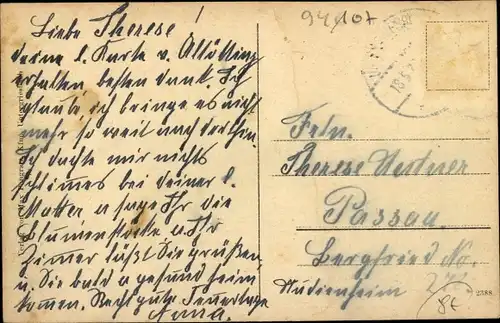 94107
Liebe Therese!
deine l. Karte v. Altötting
erhalten besten Dank. Ich
glaube, ich bringe es nicht
mehr so weit nach dorthin.
Ich dachte mir nichts
schlimmes bei deiner l.
Mutter u sage Ihr die
Blumenstöcke u. Ihr
Zimer läßt Sie grüßen,
u. Sie bald u gesund heim
komen. Recht gute Feiertage
Anna
Frln.
Therese
Passau
Bergfried No.
Studienheim
2388